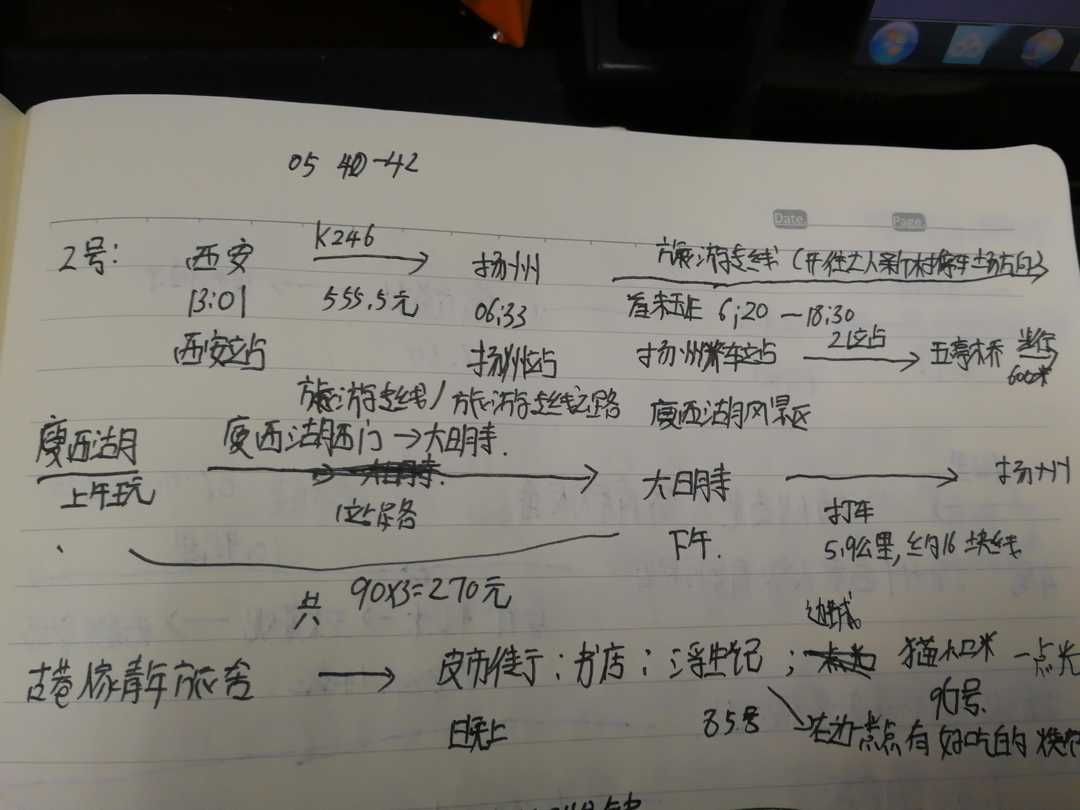 05 40-42
Date.
Page.
2号: 西安 K246 扬州 旅游专线
13:01 555.5元 06:33 首末班 6:20 — 18:30
西安站 扬州站 扬州火车站 21站 五亭桥 步行
600米
旅游专线/旅游专线 瘦西湖风景区
瘦西湖 瘦西湖西门→大明寺.
上午玩 大明寺 扬州
1站路 下午. 打车
5.9公里,约16块钱
共 90x3=270元
边城
古巷 年旅舍 皮市街:书店:浮生记; 猫的 一点光
90号.
日晚上 85号 有好吃的